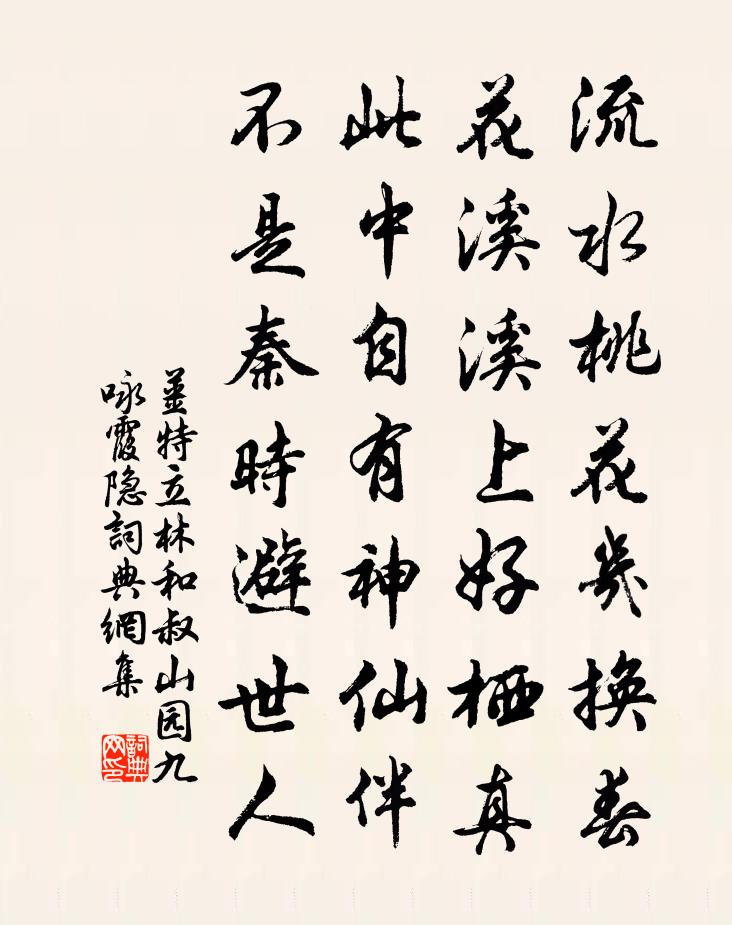 流水桃花几换春
花溪溪上好栖真
此中自有神仙伴
不是秦時避世人
姜特立林和叔山园九
咏霞隐詞典網集
詞典網印